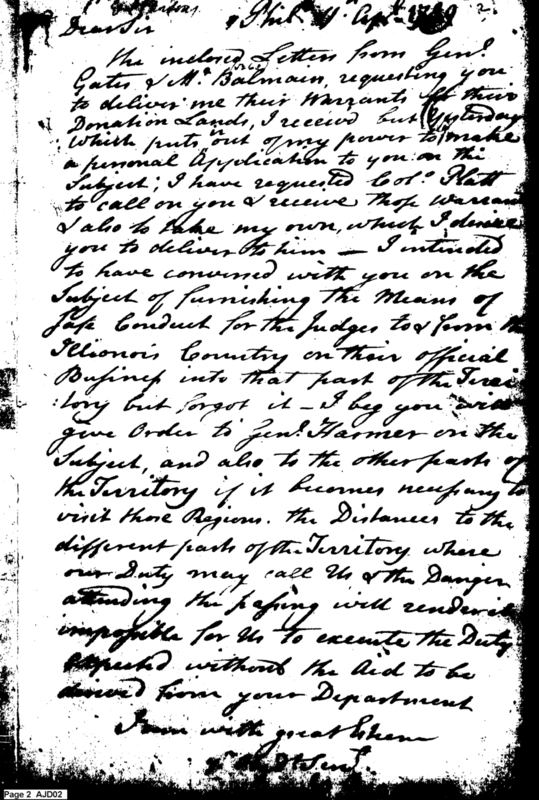 Dear Sir Phil. 11 Sept. 1789 2.
The inclosed Letters from Genl.
Gates & Mr. Balmain, requesting you
to deliver me their Warrants for their
Donation Lands, I received but Yesterday
which puts it out of my power to make
a personal Application to you on the
Subject; I have requested Colo. Platt
to call on you & receive those Warrants
& also to take my own, which I desire
you to deliver to him — I intended
to have conversed with you on the
Subject of furnishing the Means of
Safe Conduct for the Judges to & from the
Illionois Country on their official
Business into that part of the Terri
:tory but forgot it — I beg you will
give Order to Genl. Harmer on the
Subject, and also to the other parts of
the Territory if it becomes necessary to
visit those Regions. the Distances to the
different parts of the Territory where
our Duty may call Us & the Danger
attending the passing will render it
impossible for Us to execute the Duty
expected without the Aid to be
derived from your Department
I am with great Esteem
yr. Ob. St. Servt.
Page 2 AJD02